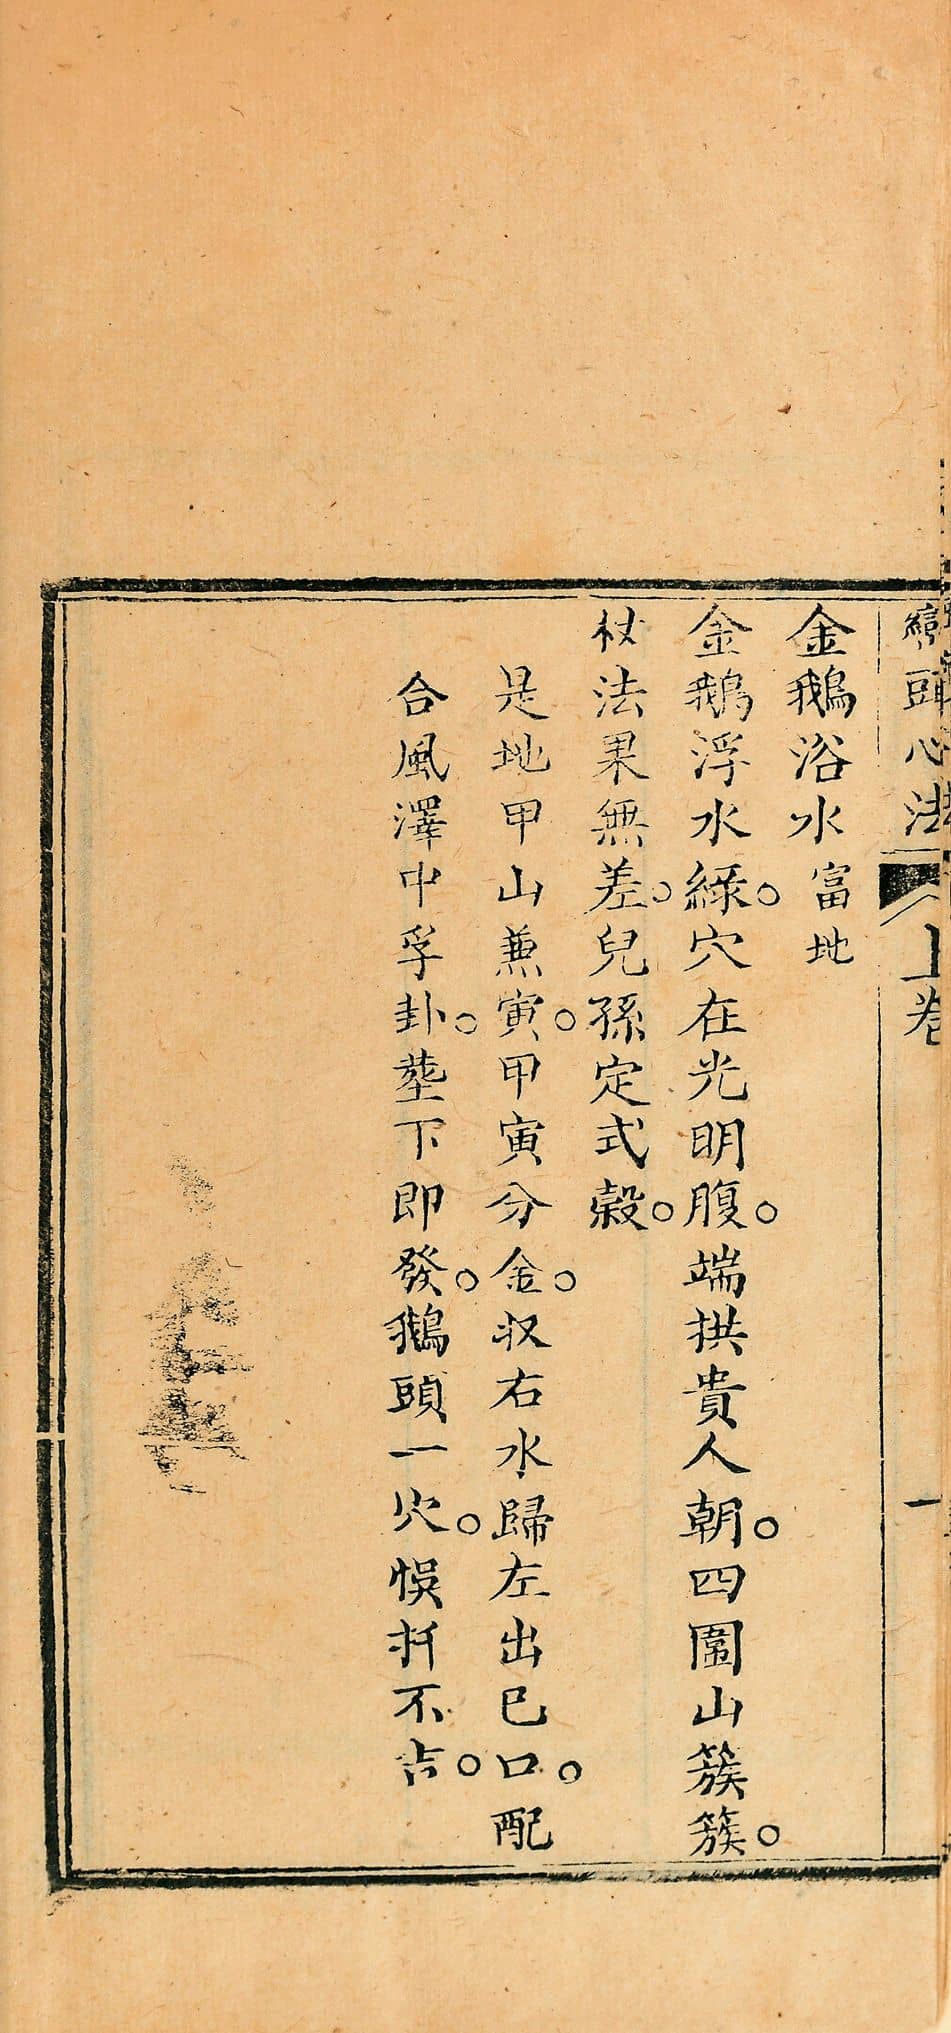 巒頭心法 上卷 一
金鵝浴水富地
金鵝浮水綠。穴在光明腹。端拱貴人朝。四圍山簇簇。
杖法果無差。兒孫定式穀。
是地甲山兼寅。甲寅分金。收右水歸左出巳口。配
合風澤中孚卦。塟下即發。鵝頭一穴。悞扦不吉。